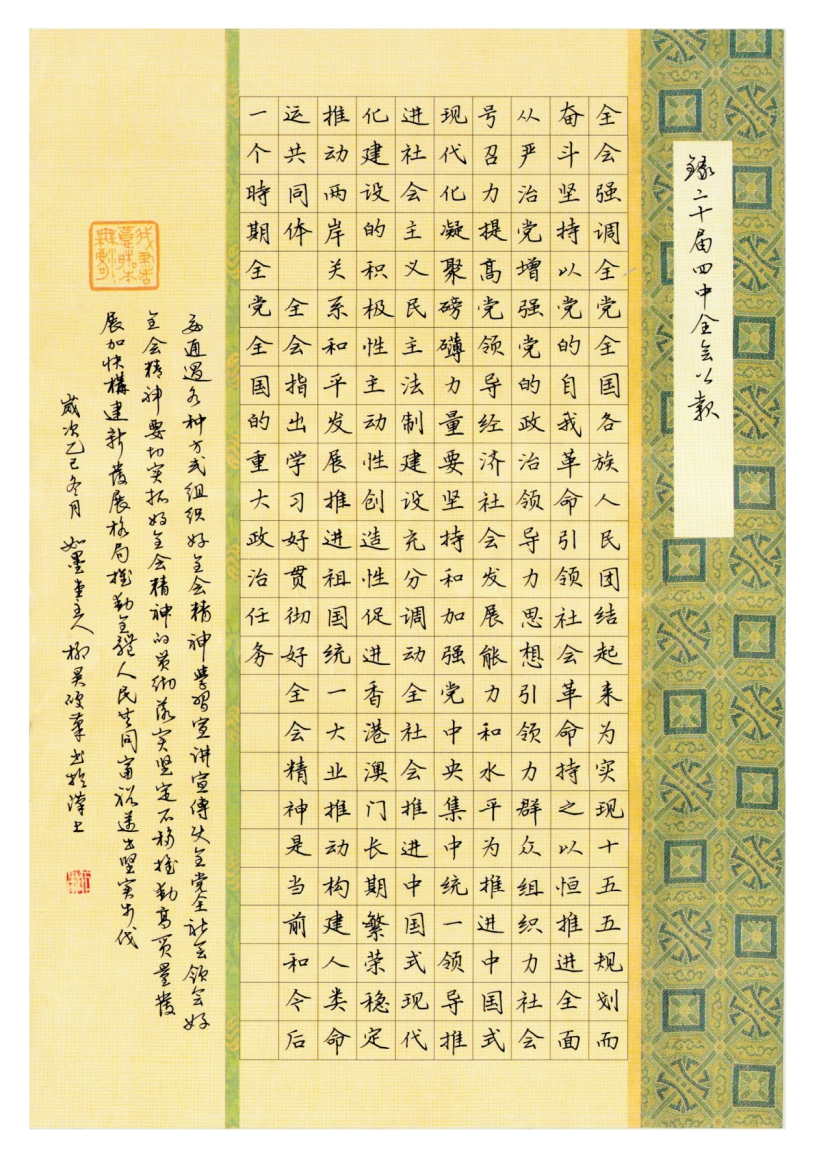 錄二十届四中全会公報
全会强调全党全国各族人民团结起来为实现十五五规划而
奋斗坚持以党的自我革命引领社会革命持之以恒推进全面
从严治党增强党的政治领导力思想引领力群众组织力社会
号召力提高党领导经济社会发展能力和水平为推进中国式
现代化凝聚磅礴力量要坚持和加强党中央集中统一领导推
进社会主义民主法制建设充分调动全社会推进中国式现代
化建设的积极性主动性创造性促进香港澳门长期繁荣稳定
推动两岸关系和平发展推进祖国统一大业推动构建人类命
运共同体 全会指出学习好贯彻好全会精神是当前和今后
一个時期全党全国的重大政治任务
要通過各种方式组织好全会精神學習宣讲宣傳使全党全社会领会好
全会精神要切实抓好全会精神的贯彻落实坚定不移推動高质量發
展加快構建新發展格局推動全體人民共同富裕邁出坚实步伐
歲次乙巳冬月 如墨堂主人 柳昊硬筆书於